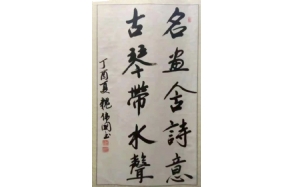 名畫含詩意
古琴帶水聲
丁酉夏魏伟国书